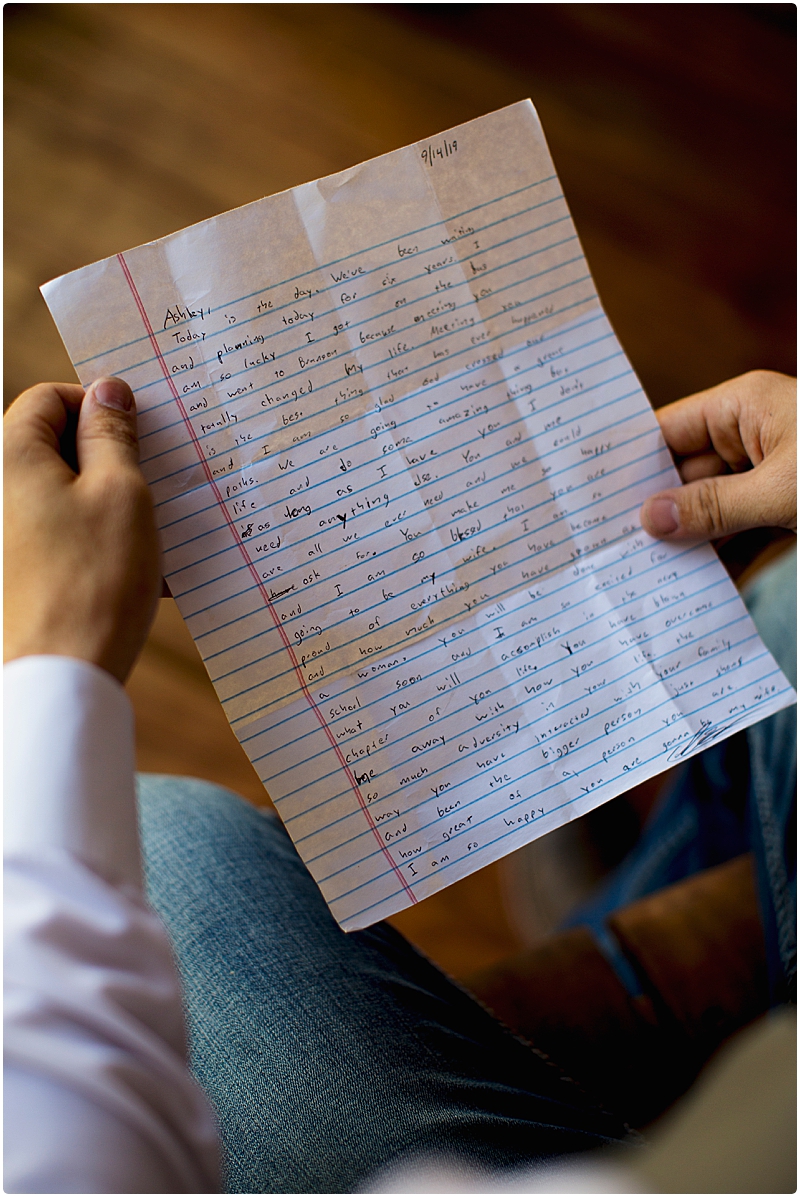 9/14/19
Ashley,
Today is the day. We've been waiting
and planning today for six years. I
am so lucky I got on the bus
and went to Branson because meeting you
totally changed my life. Meeting you
is the best thing that has ever happened
and I am so glad God crossed our
paths. We are going to have a great
life and do some amazing things but
as long as I have you I don't
need anything else. You and me
are all we ever need and we could
ask for. You make me so happy
and I am so blessed that you are
going to be my wife. I am so
proud of everything you have become
and how much you have grown as
a woman. You will be done with
school soon and I am so excited for
what you will accomplish in the next
chapter of you life. You have blown
me away with how you have overcome
so much adversity in your life. the
way you have interacted with your family
and been the bigger person just shows
how great of a person you are
I am so happy you are gonna be my wife